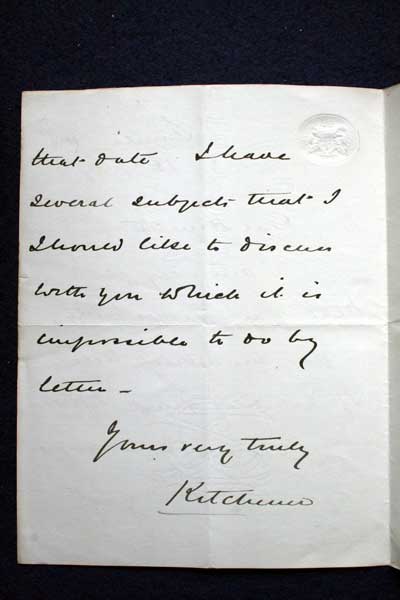 that date I have
several subjects that I
should like to discuss
with you which it is
impossible to do by
letter –
Yours very truly
Kitchener